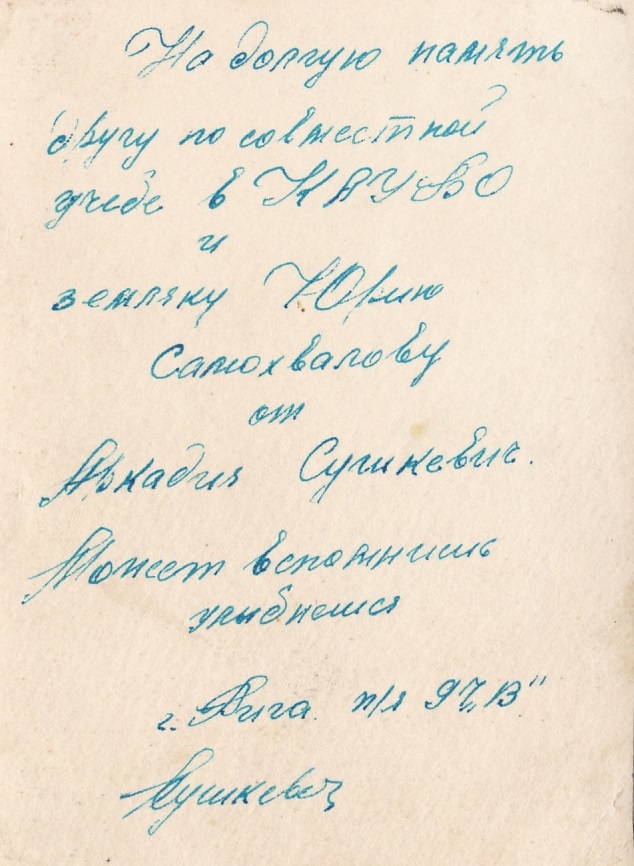 На долгую память
другу по совместной
учебе в КАУБО
и
земляку Юрию
Самохвалову
от
Аркадия Сушкевич.
Может вспомнишь
улыбнешся
г. Рига. п/я 97„В"